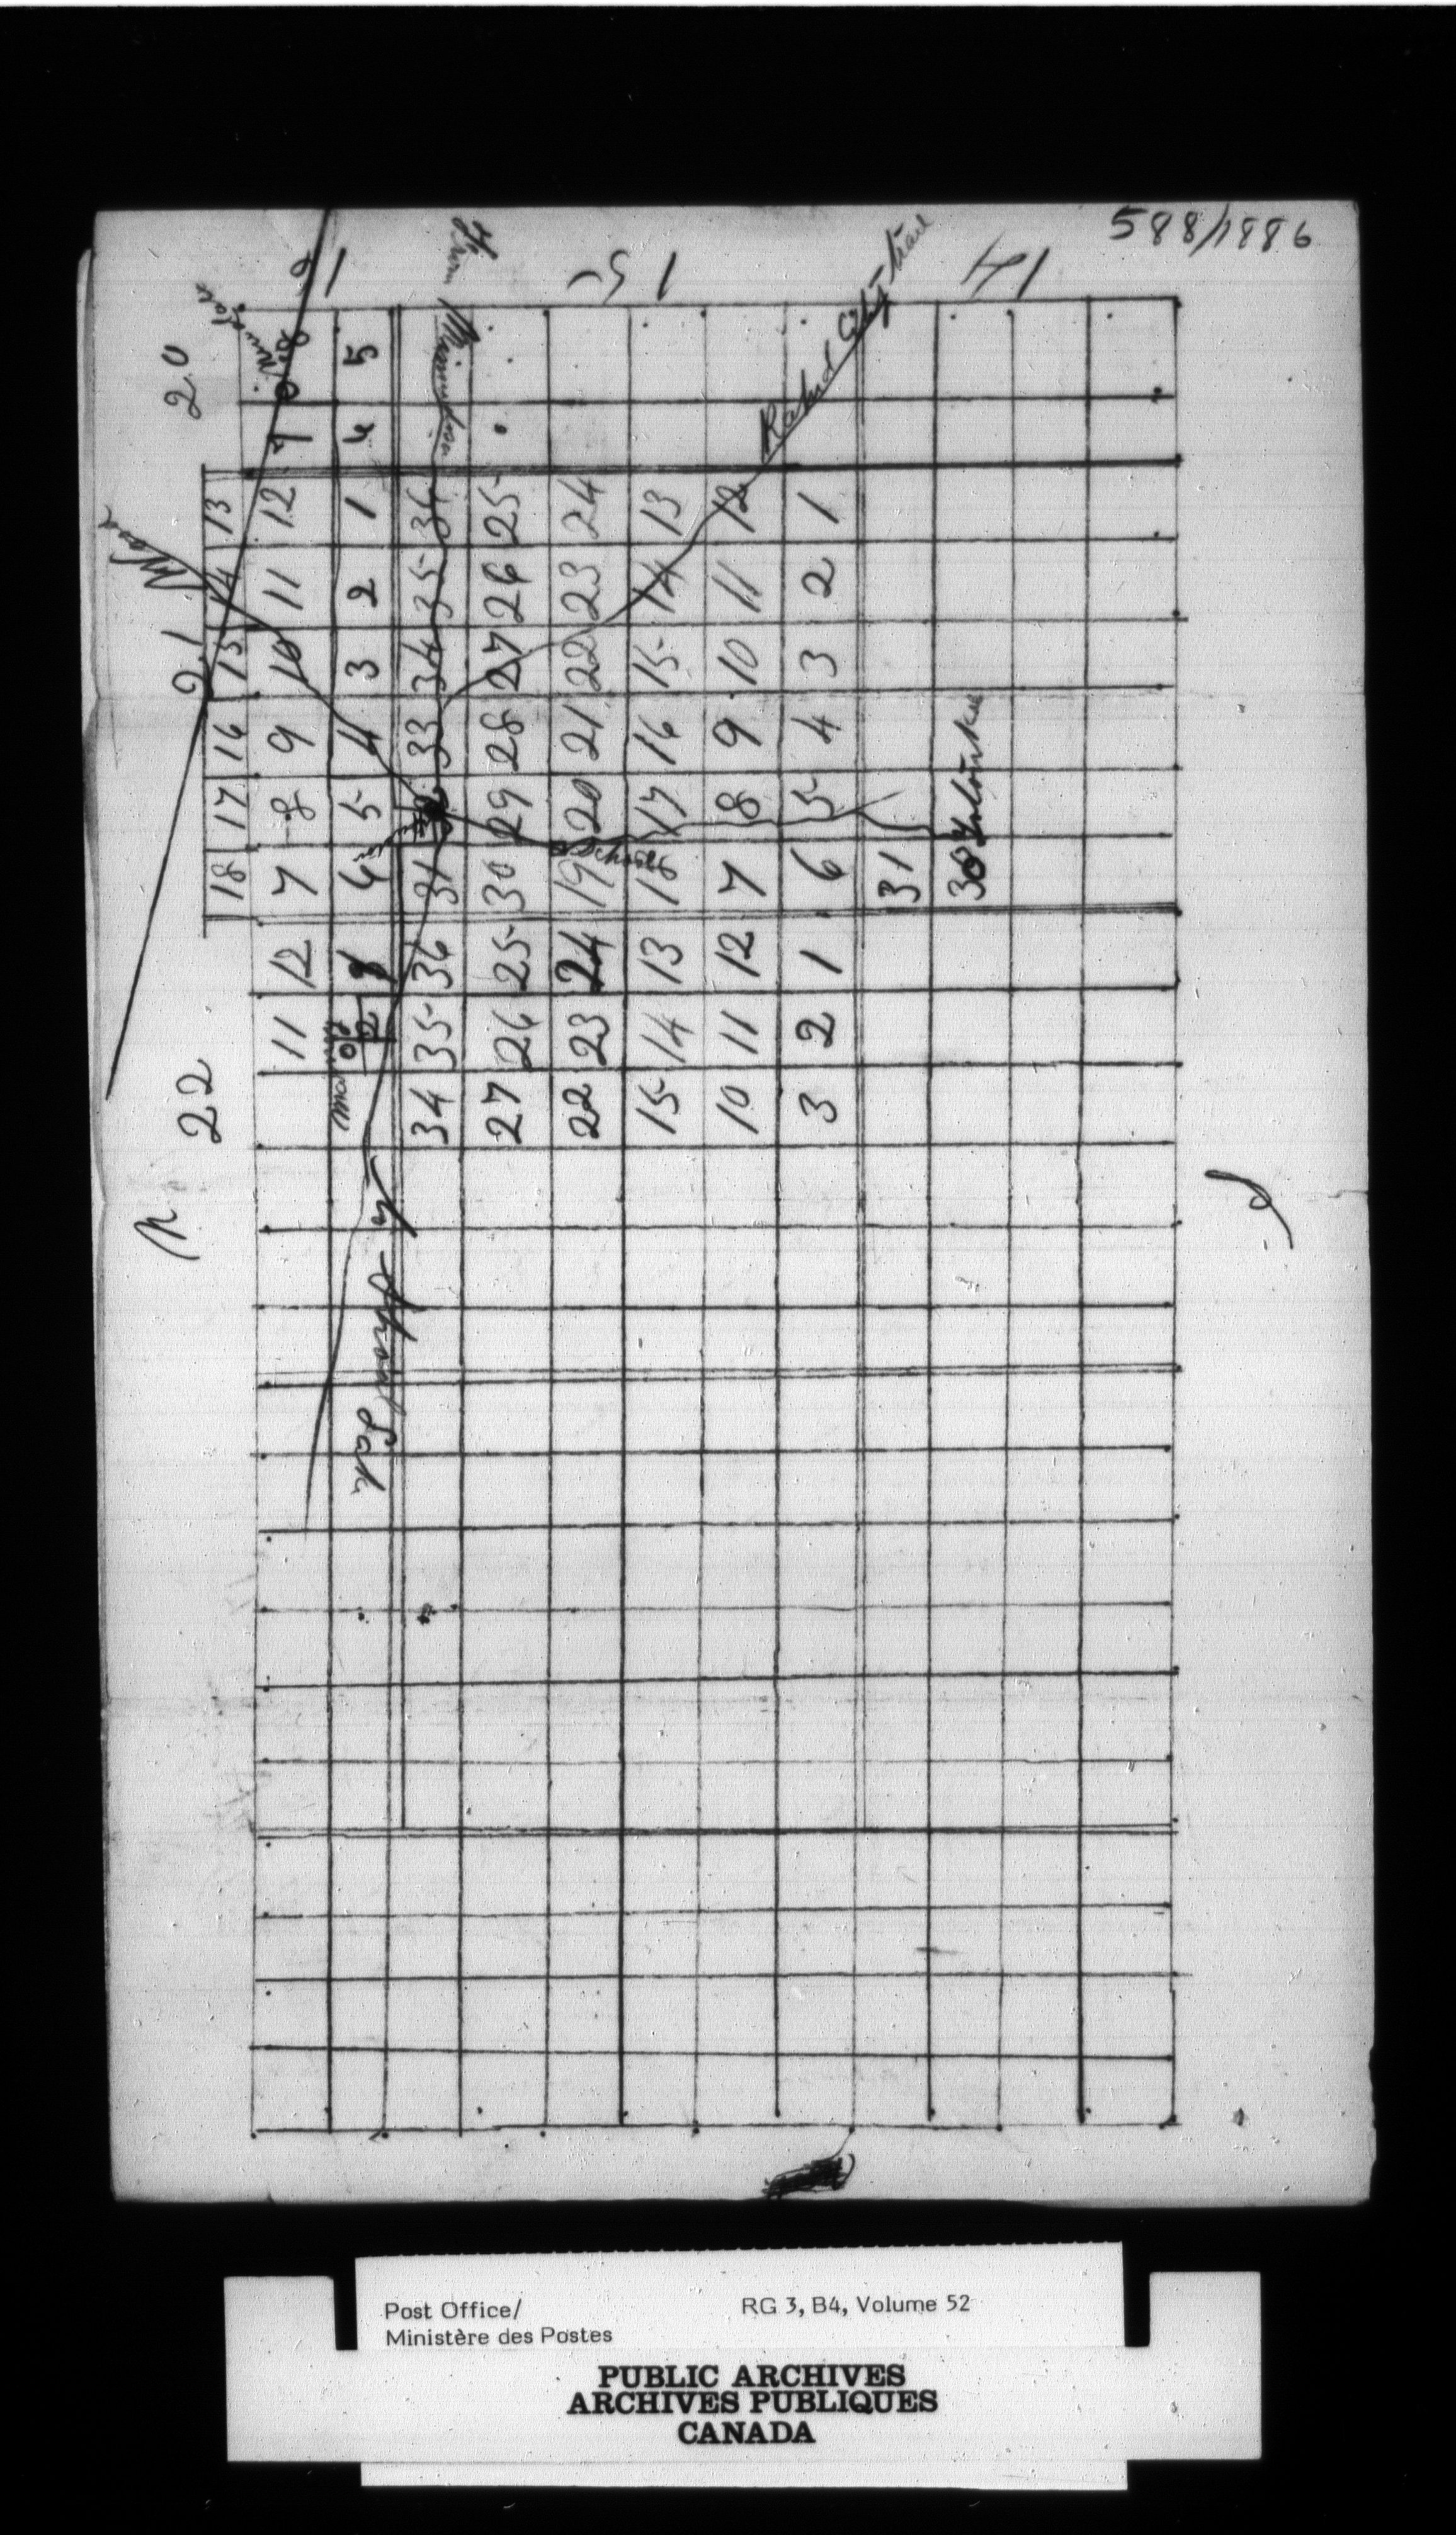 588/1886
16
15
14
20
21
22
5
4
From Minnedosa
Rapid City trail
13 12 1 36 25 24 13 12 1
14 11 2 35 26 23 14 11 2
15 10 3 34 27 22 15 10 3
16 9 4 33 28 21 16 9 4
17 8 5 29 20 17 8 5
18 7 6 31 30 19 18 7 6 31 30
School
12 1 36 25 24 13 12 1
11 2 35 26 23 14 11 2
34 27 22 15 10 3
Post Office/
Ministère des Postes
RG 3, B4, Volume 52
PUBLIC ARCHIVES
ARCHIVES PUBLIQUES
CANADA